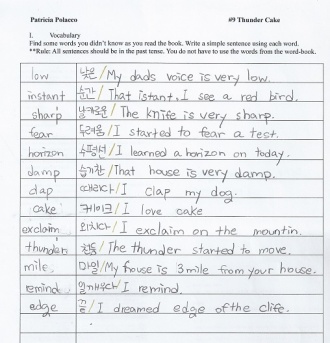 Patricia Polacco #9 Thunder Cake
I. Vocabulary
Find some words you didn't know as you read the book. Write a simple sentence using each word.
**Rule: All sentences should be in the past tense. You do not have to use the words from the word-book.
low 낮은/My dads voice is very low.
instant 순간/That istant, I see a red bird.
sharp 날카로운/The knife is very sharp.
fear 두려움/I started to fear a test.
horizon 수평선/I learned a horizon on today.
damp 습기찬/That house is very damp.
clap 때리다/I clap my dog.
cake 케이크/I love cake
exclaim 외치다/I exclaim on the mountin.
thunder 천둥/The thunder started to move.
mile 마일/My house is 3 mile from your house.
remind 일깨우다/I remind.
edge 끝/I dreamed edge of the clife.